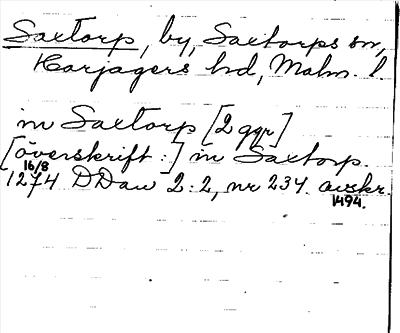 Saxtorp, by, Saxtorps sn,
Harjagers hd, Malm. l
in Saxtorp [2 ggr]
[överskrift:] in Saxtorp.
16/8
1274 DDaw 2:2, nr 234. avskr.
1494.